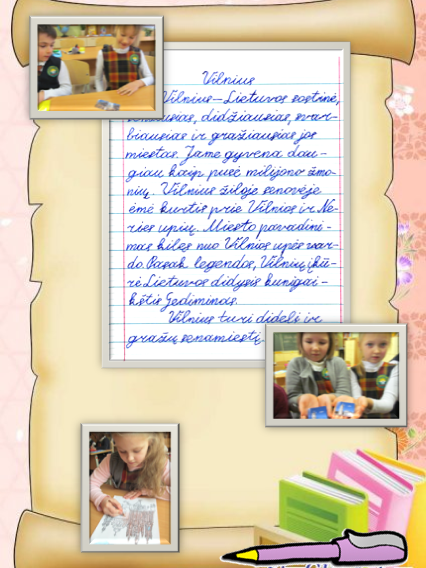 Vilnius
Vilnius – Lietuvos sostinė,
didžiausias, svar-
biausias ir gražiausias jos
miestas. Jame gyvena dau-
giau kaip pusė milijono žmo-
nių. Vilnius žiloje senovėje
ėmė kurtis prie Vilnios ir Ne-
ries upių. Miesto pavadini-
mas kilęs nuo Vilnios upės var-
do. Pasak legendos, Vilnių įkū-
rė Lietuvos didysis kunigai-
kštis Gediminas.
Vilnius turi didelį ir
gražų senamiestį.